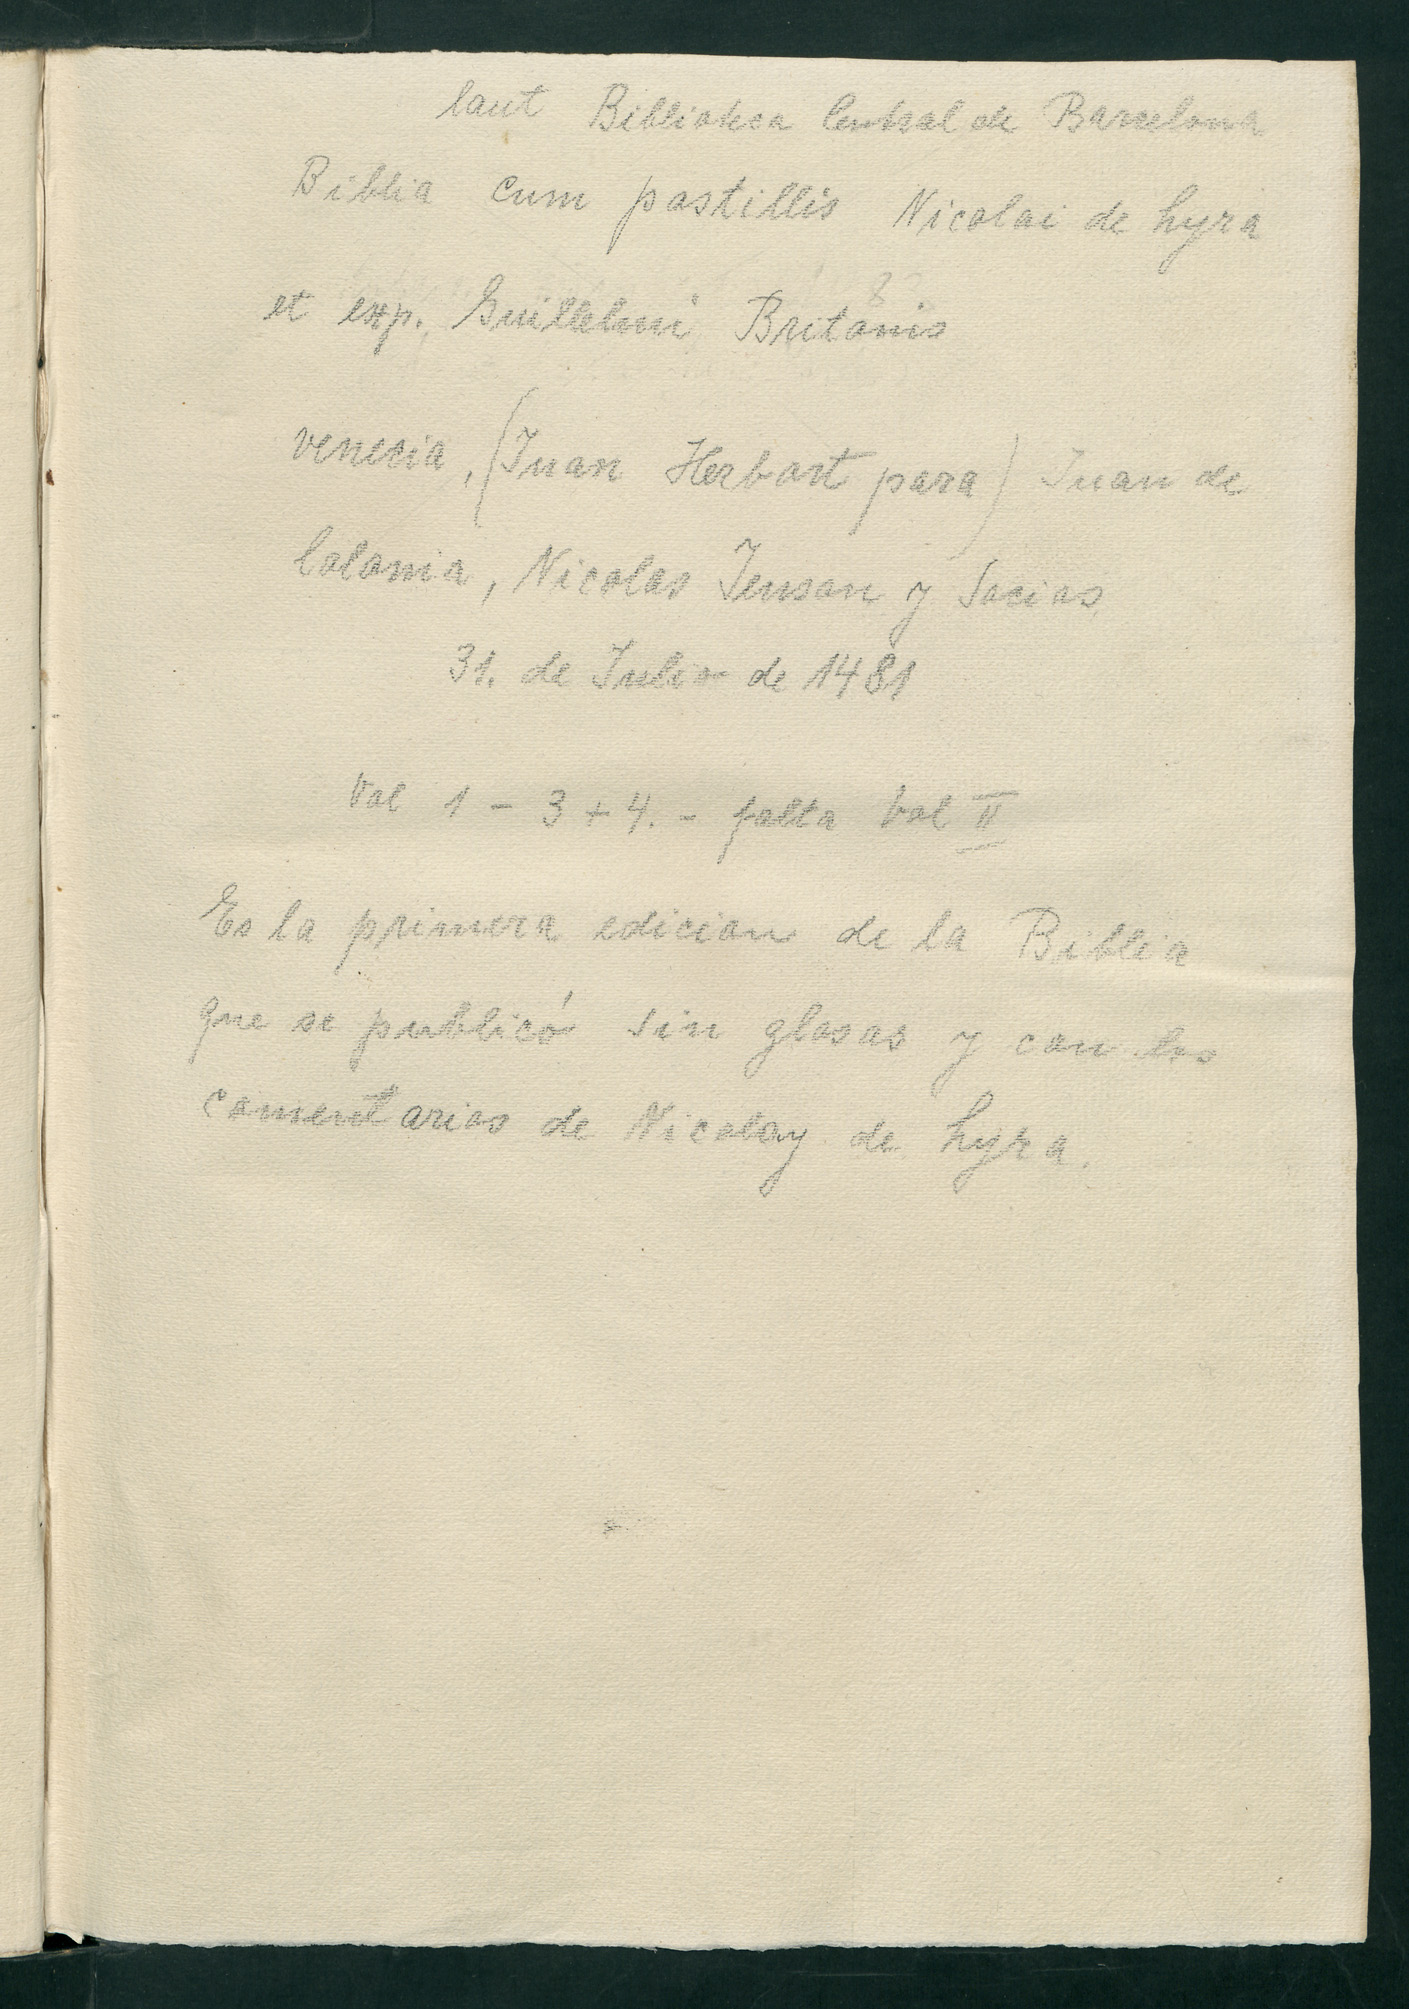 laut Biblioteca Central de Barcelona
Biblia cum postillis Nicolai de Lyra
et exp. Guillelmi Britonis
Venecia, (Juan Herbort para) Juan de
Colonia, Nicolas Jenson y Socios
31. de Julio de 1481
Vol 1 - 3 + 4. - falta Vol II
Es la primera edicion de la Biblia
que se publicó sin glosas y con los
comentarios de Nicolay de Lyra.